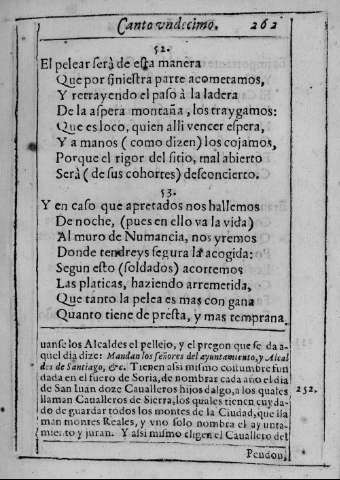 Canto vndecimo. 262
52.
El pelear serà de esta manera
Que por siniestra parte acometamos,
Y retrayendo el paso à la ladera
De la aspera montaña, los traygamos:
Que es loco, quien alli vencer espera,
Y a manos ( como dizen) los cojamos,
Porque el rigor del sitio, mal abierto
Serà ( de sus cohortes) desconcierto.
53.
Y en caso que apretados nos hallemos
De noche, (pues en ello va la vida)
Al muro de Numancia, nos yremos
Donde tendreys segura la acogida:
Segun esto (soldados) acortemos
Las platicas, haziendo arremetida,
Que tanto la pelea es mas con gana
Quanto tiene de presta, y mas temprana
uanse los Alcaldes el pellejo, y el pregon que se da a-
quel dia dize: Mandan los señores del ayuntamiento, y Alcal
des de Santiago, &c. Tienen assi mismo costumbre fun
dada en el fuero de Soria, de nombrar cada año el dia
de San Iuan doze Caualleros hijos dalgo, a los quales 252.
llaman Caualleros de Sierra, los quales tienen cuyda-
do de guardar todos los montes de la Ciudad, que lla
man montes Reales, y vno solo nombra el ayunta-
miento y juran. Y assi mismo eligen el Cauallero del
Pendon,